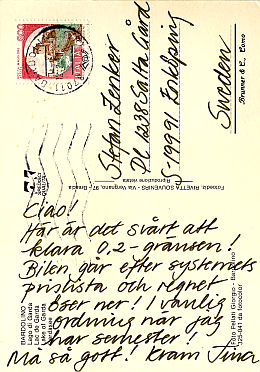 Ciao!
Här är det svårt att
klara 0,2-gränsen!
Bilen går efter systemets
prislista och regnet
öser ner! I vanlig
ordning när jag
har semester!
Må så gott! Kram Tina
Stefan Zenker
Pl 1238 Sätta Gård
S-19991 Enköping
Sweden
Brunner & C., Como
Fotoed. RIVETTA SOUVENIRS - Via Vergnano, 97 - Brescia
Riproduzione vietata
BARDOLINO
Lago di Garda
Lac de Garda
Lake of Garda
Gardasee
Foto Pelati Giorgio - Bardolino
325-041 da fotocolor